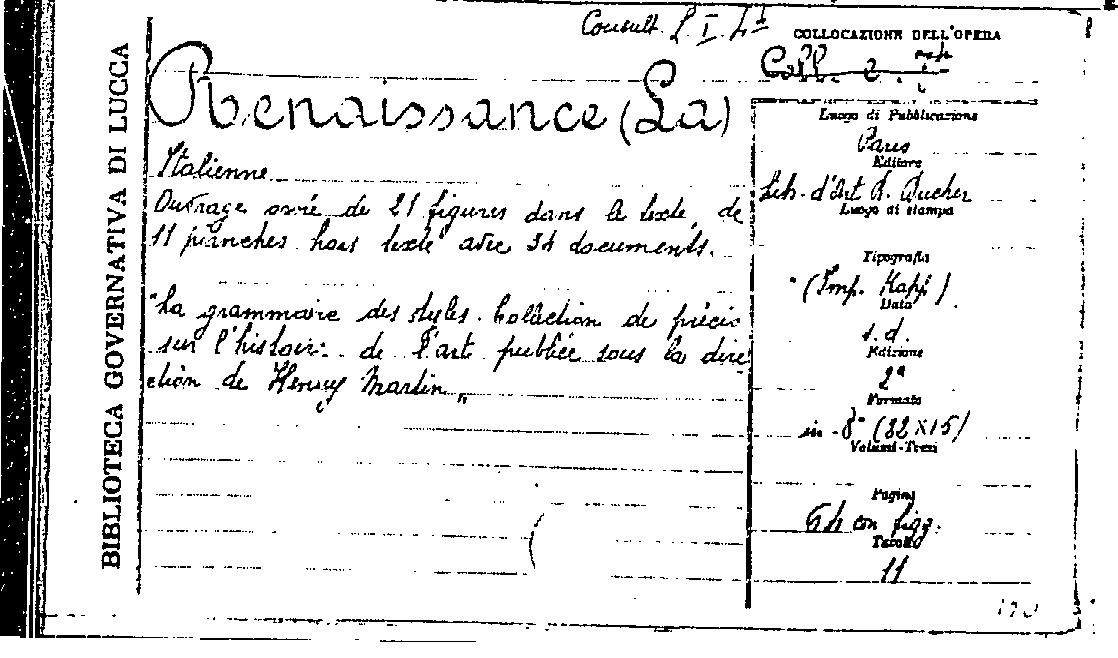 BIBLIOTECA GOVERNATIVA DI LUCCA
Consult. I
COLLOCAZIONE DELL'OPERA
Coll.
Renaissance (La)
Italienne
Ouvrage orné de 21 figures dans le texte, de
11 planches hors texte avec 34 documents.
"La grammaire des styles. Collection de précis
sur l'histoire de l'art publiée sous la dire
ction de Henry Martin„
Luogo di Pubblicazione
Paris
Editore
Lib. d'Art R. Ducher
Luogo di stampa
Tipografia
(Imp. Kapp).
Data
s.d.
Edizione
2ª
Formato
in-8° (22X15)
Volumi-Tomi
Pagine
64 con figg.
Tavole
11